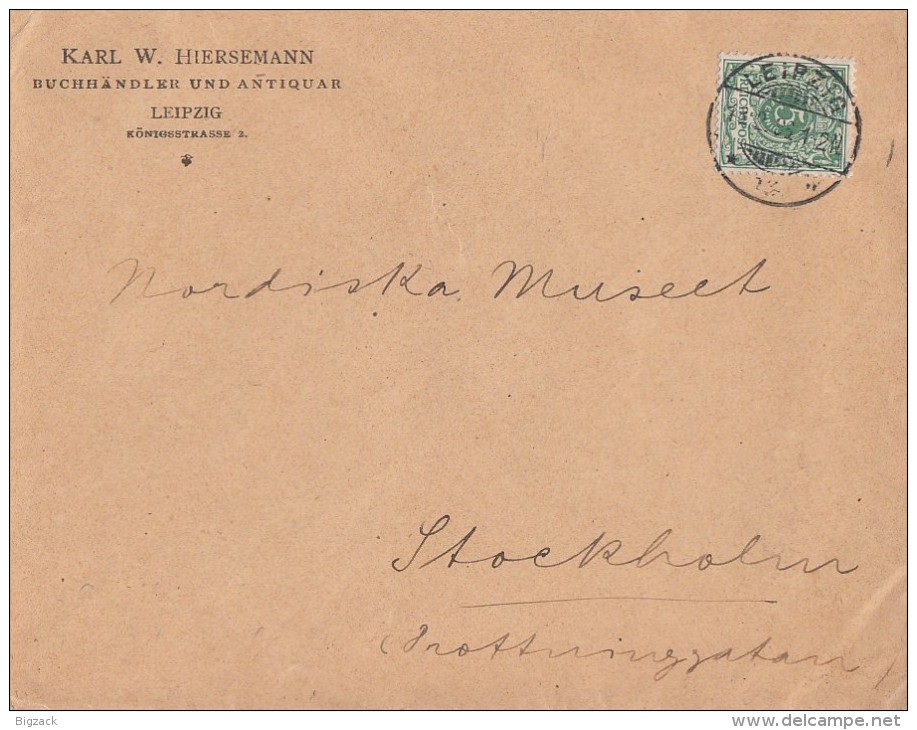 KARL W. HIERSEMANN
BUCHHÄNDLER UND ANTIQUAR
LEIPZIG
KÖNIGSSTRASSE 3.
LEIPZIG
5
1-2N
Nordiska Museet
Stockholm
(Drottninggatan)
Bigzack
www.delcampe.net